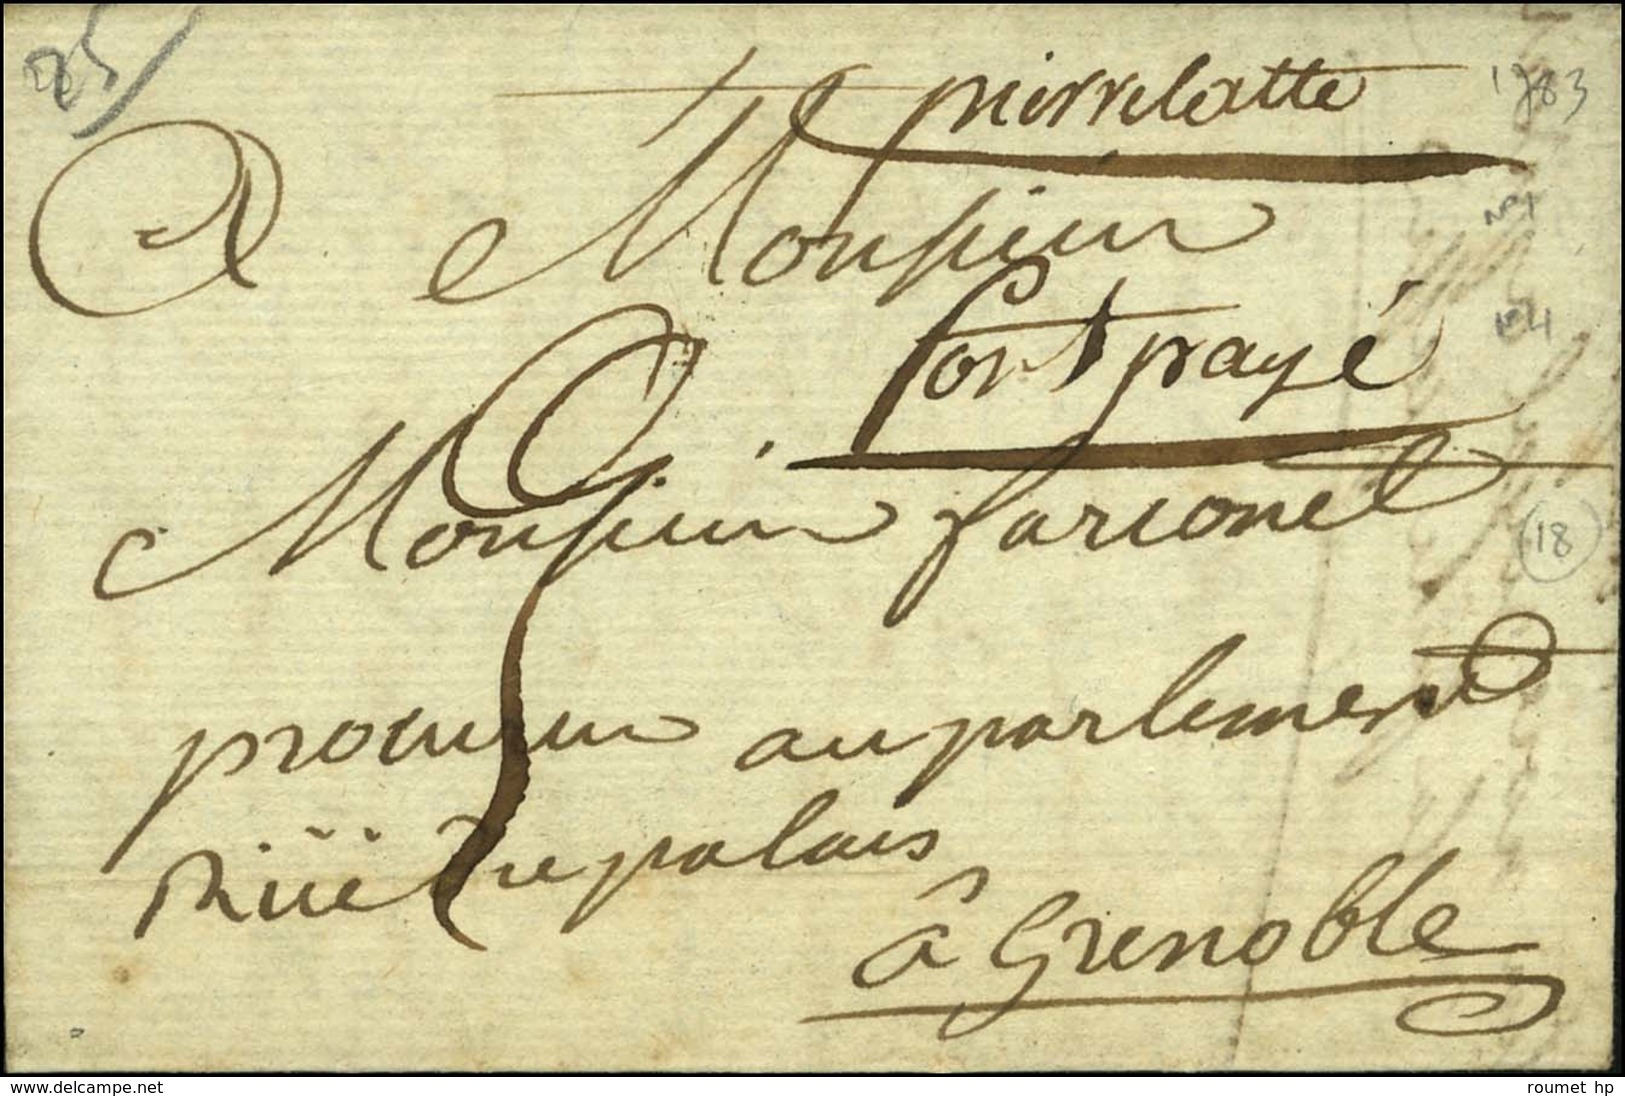 25
pierrelatte
1783
A Monsieur
n°1
port payé
n°4
Monsieur farconet
18
procureur au parlement
Rüë du palais
à Grenoble
www.delcampe.net
roumet hp